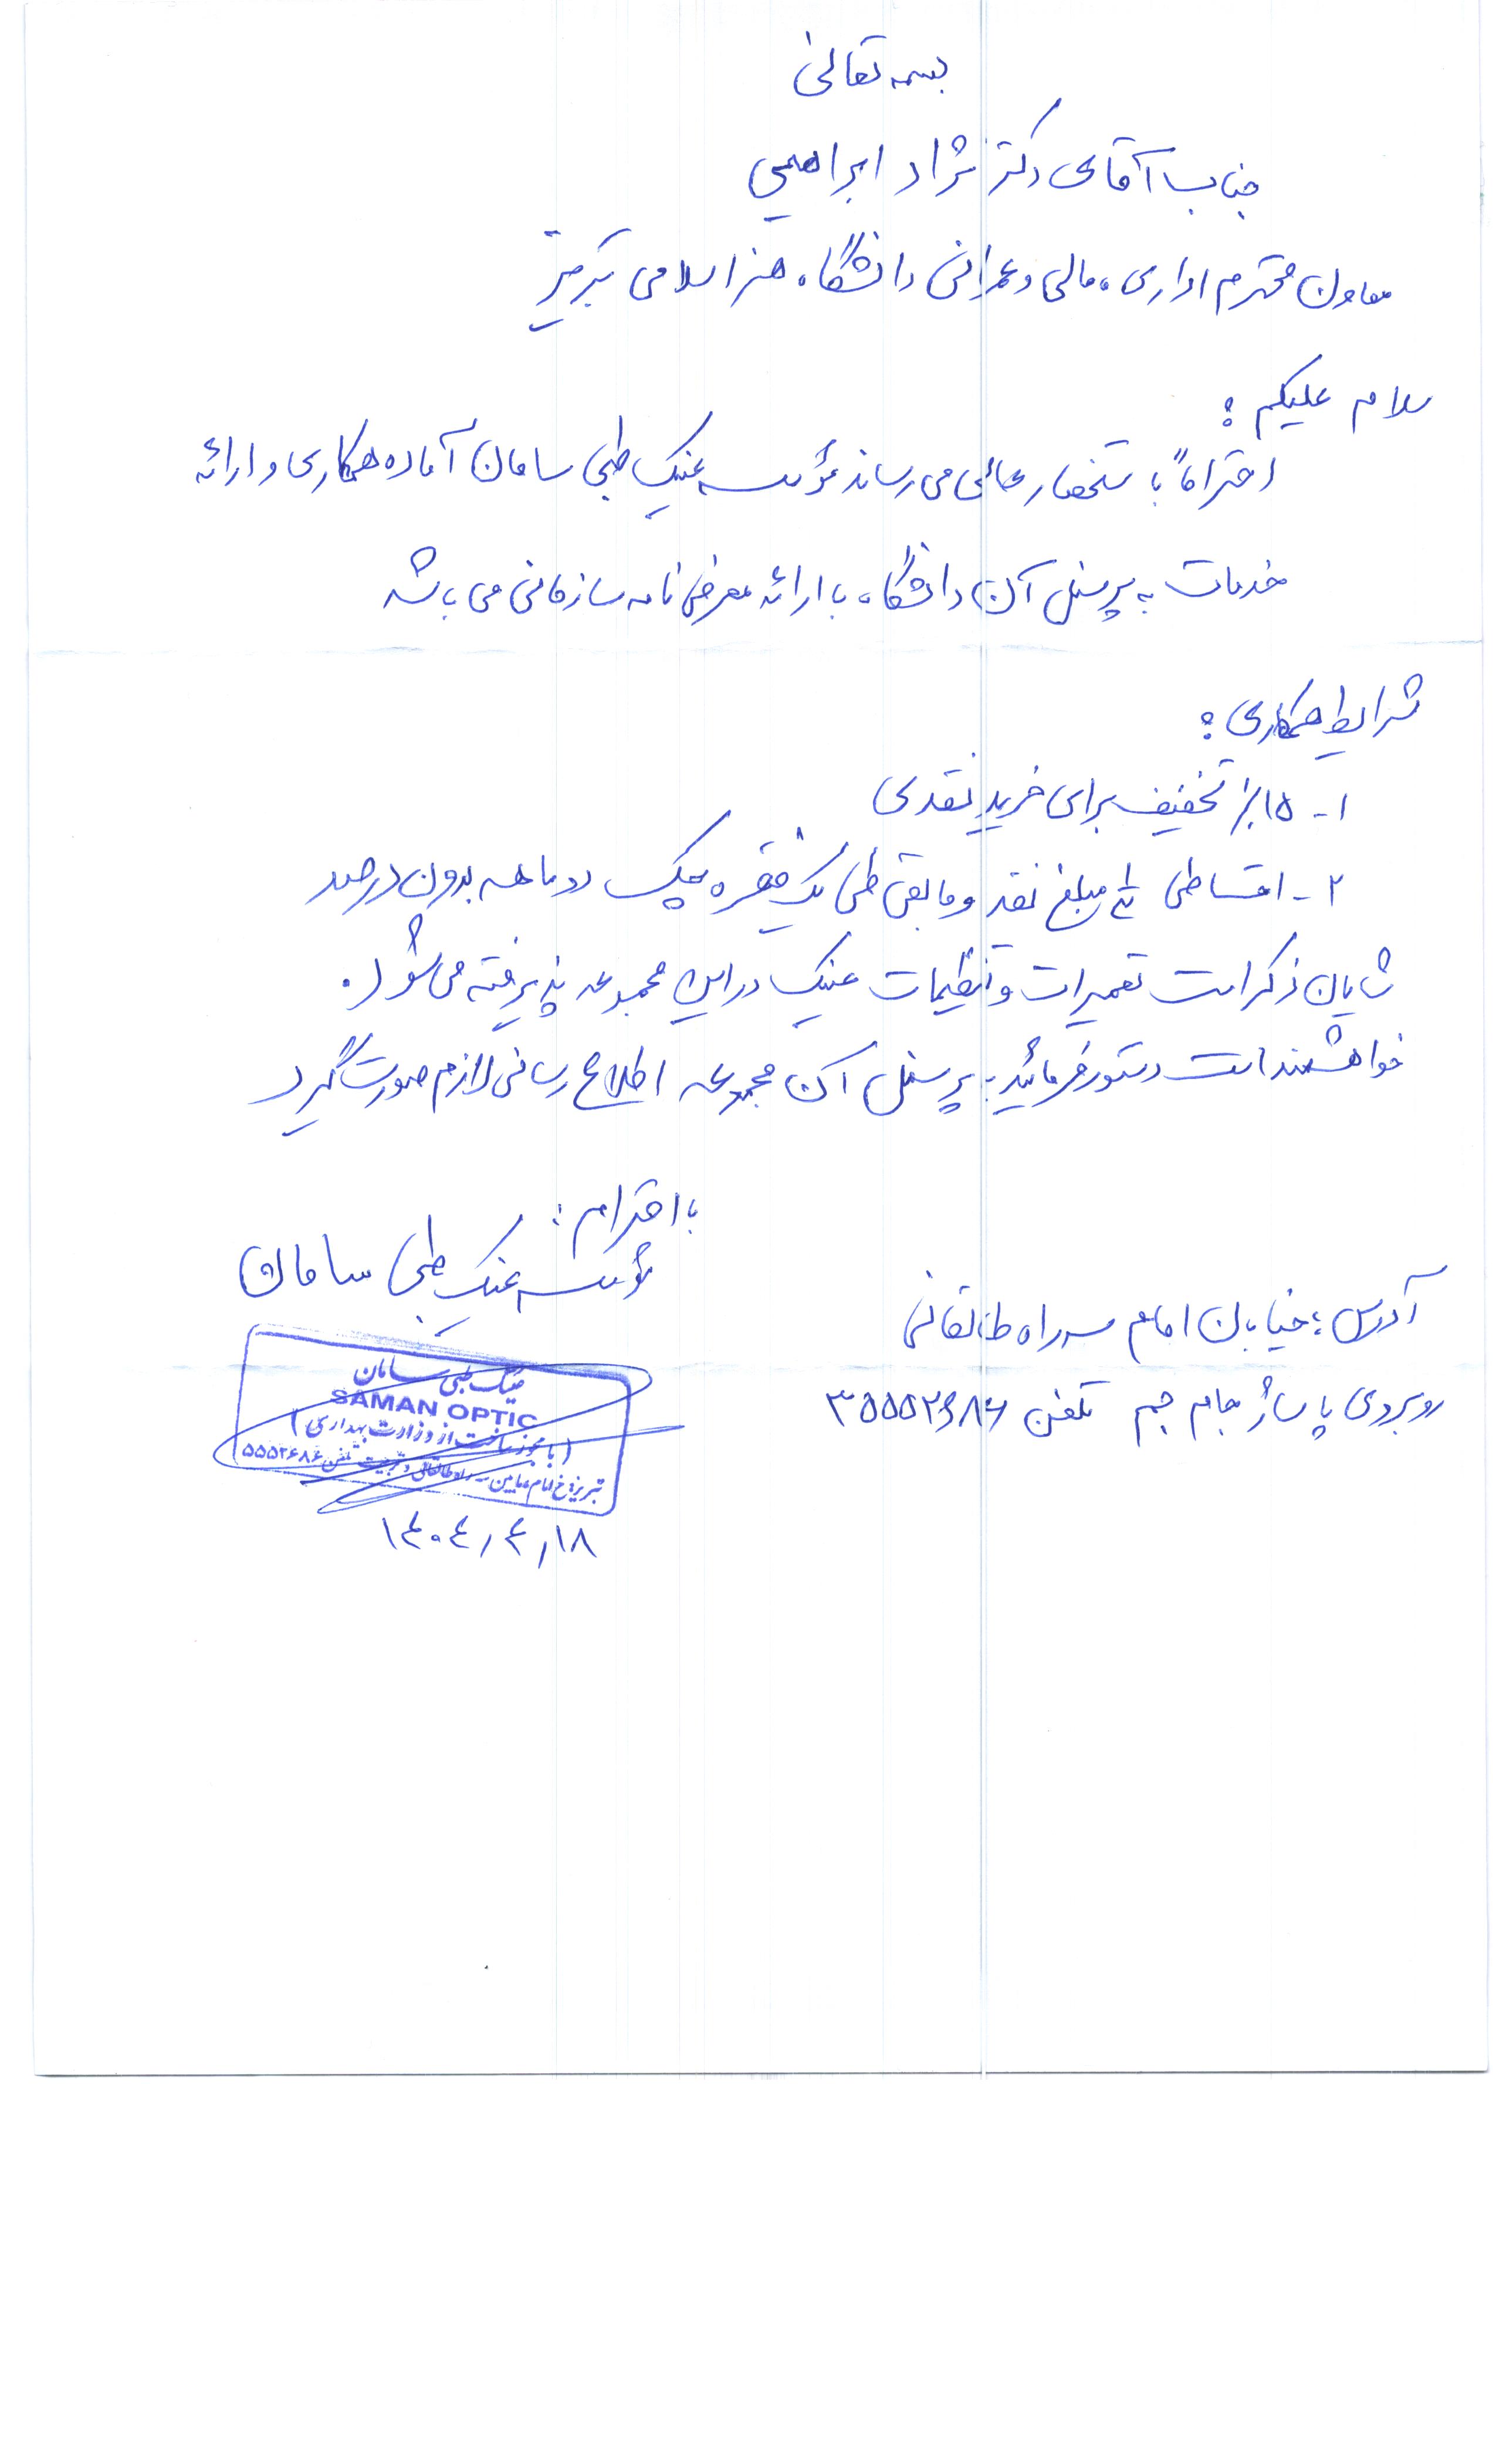 بسمه تعالی
جناب آقای دکتر نژاد ابراهیمی
معاون محترم اداری، مالی و عمرانی دانشگاه هنر اسلامی تبریز
سلام علیکم:
احتراماً باستحضار عالی می رساند مؤسسه عینک طبی سامان آماده همکاری و ارائه
خدمات به پرسنل آن دانشگاه با ارائه معرفی نامه سازمانی می باشد
شرایط همکاری:
۱- ۱۵٪ تخفیف برای خرید نقدی
۲- اقساطی مبلغ نقد و مابقی طی یک فقره چک دو ماهه بدون درصد
شایان ذکر است تعمیرات و تنظیمات عینک در این مجموعه پذیرفته می شود.
خواهشمند است دستور فرمائید به پرسنل آن مجموعه اطلاع رسانی لازم صورت گیرد
با احترام:
مؤسسه عینک طبی سامان
آدرس: خیابان امام سه راه طالقانی
روبروی پاساژ جام جم تلفن ۳۵۵۵۲۶۸۶
عینک طبی سامان
SAMAN OPTIC
(با مجوز ساخت از وزارت بهداری)
تبریز: خ امام مابین سه راه طالقانی و تربیت تلفن ۵۵۵۲۶۸۶
۱۴۰۴/۴/۱۸